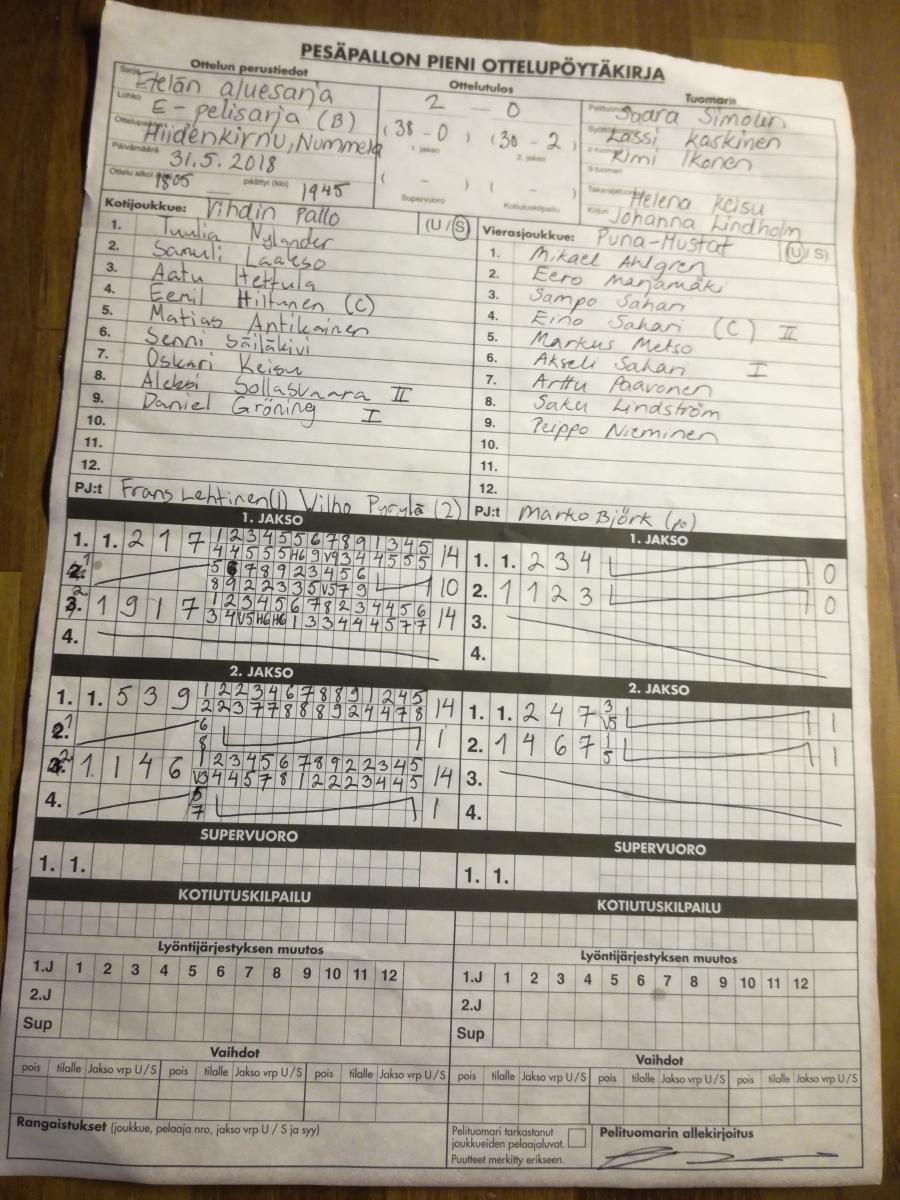 PESÄPALLON PIENI OTTELUPÖYTÄKIRJA
Ottelun perustiedot
Sarja Etelän aluesarja
Lohko E-pelisarja (B)
Ottelupaikka Hiidenkirnu, Nummela
Päivämäärä 31.5.2018
Ottelu alkoi (klo) 1805 päättyi (klo) 1945
Ottelutulos
2 - 0
(38 - 0) (30 - 2)
1. jakso 2. jakso
( - ) ( - )
Supervuoro Kotiutuskilpailu
Tuomarit
Pelituomari Saara Simolin
Lassi Kaskinen
2-tuomari Kimi Ikonen
3-tuomari
Takarajatuomari Helena Keisu
Kirjuri Johanna Lindholm
Kotijoukkue: Vihdin Pallo (U/S)
1. Tuulia Nylander
2. Samuli Laakso
3. Aatu Tettula
4. Eemil Hiltunen (C)
5. Matias Antikainen
6. Senni Säiläkivi
7. Oskari Keisu
8. Aleksi Sollasvaara II
9. Daniel Gröning I
10.
11.
12.
PJ:t Frans Lehtinen (1) Vilho Pyrylä (2)
Vierasjoukkue: Puna-Mustat (U/S)
1. Mikael Ahlgren
2. Eero Marjamäki
3. Sampo Sahari
4. Eino Sahari (C) II
5. Markus Metso
6. Akseli Sahari I
7. Arttu Paavonen
8. Saku Lindström
9. Peippo Nieminen
10.
11.
12.
PJ:t Marko Björk (po)
1. JAKSO
1. 1. 2 1 7 1 2 3 4 5 5 6 7 8 9 1 3 4 5 14
4 4 5 5 5 H6 9 V9 3 4 4 5 5 5
5 6 7 8 9 2 3 4 5 6 10
8 9 2 2 3 3 5 V5 7 9
1 9 1 7 1 2 3 4 5 6 7 8 2 3 4 4 5 6 14
3 4 V5 H6 H6 1 3 3 4 4 4 5 7 7
4.
1. JAKSO
1. 1. 2 3 4 0
2. 1 1 2 3 0
3.
4.
2. JAKSO
1. 1. 5 3 9 1 2 2 3 4 6 7 8 8 9 1 2 4 5 14
2 2 3 7 7 8 8 8 9 2 4 4 7 8
6 1
8
1. 1 4 6 1 2 3 4 5 6 7 8 9 2 2 3 4 5 14
V3 4 4 5 7 8 1 2 2 2 3 4 4 5
4. 5 1
7
2. JAKSO
1. 1. 2 4 7 3 1
V5
2. 1 4 6 7 1 1
5
3.
4.
SUPERVUORO
1. 1.
SUPERVUORO
1. 1.
KOTIUTUSKILPAILU
KOTIUTUSKILPAILU
Lyöntijärjestyksen muutos
1.J 1 2 3 4 5 6 7 8 9 10 11 12
2.J
Sup
Lyöntijärjestyksen muutos
1.J 1 2 3 4 5 6 7 8 9 10 11 12
2.J
Sup
Vaihdot
pois tilalle Jakso vrp U/S pois tilalle Jakso vrp U/S pois tilalle Jakso vrp U/S
Vaihdot
pois tilalle Jakso vrp U/S pois tilalle Jakso vrp U/S pois tilalle Jakso vrp U/S
Rangaistukset (joukkue, pelaaja nro, jakso vrp U / S ja syy)
Pelituomari tarkastanut
joukkueiden pelaajaluvat.
Puutteet merkitty erikseen.
Pelituomarin allekirjoitus